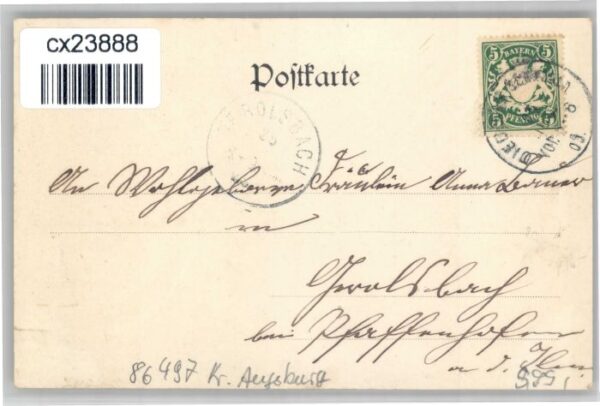 cx23888
Postkarte
5 BAYERN 5
5 PFENNIG 5
GEROLSBACH
An Wohlgeborene Fräulein Anna Bauer
in
Gerolsbach
bei Pfaffenhofen
a. d. Ilm
86497 Kr. Augsburg